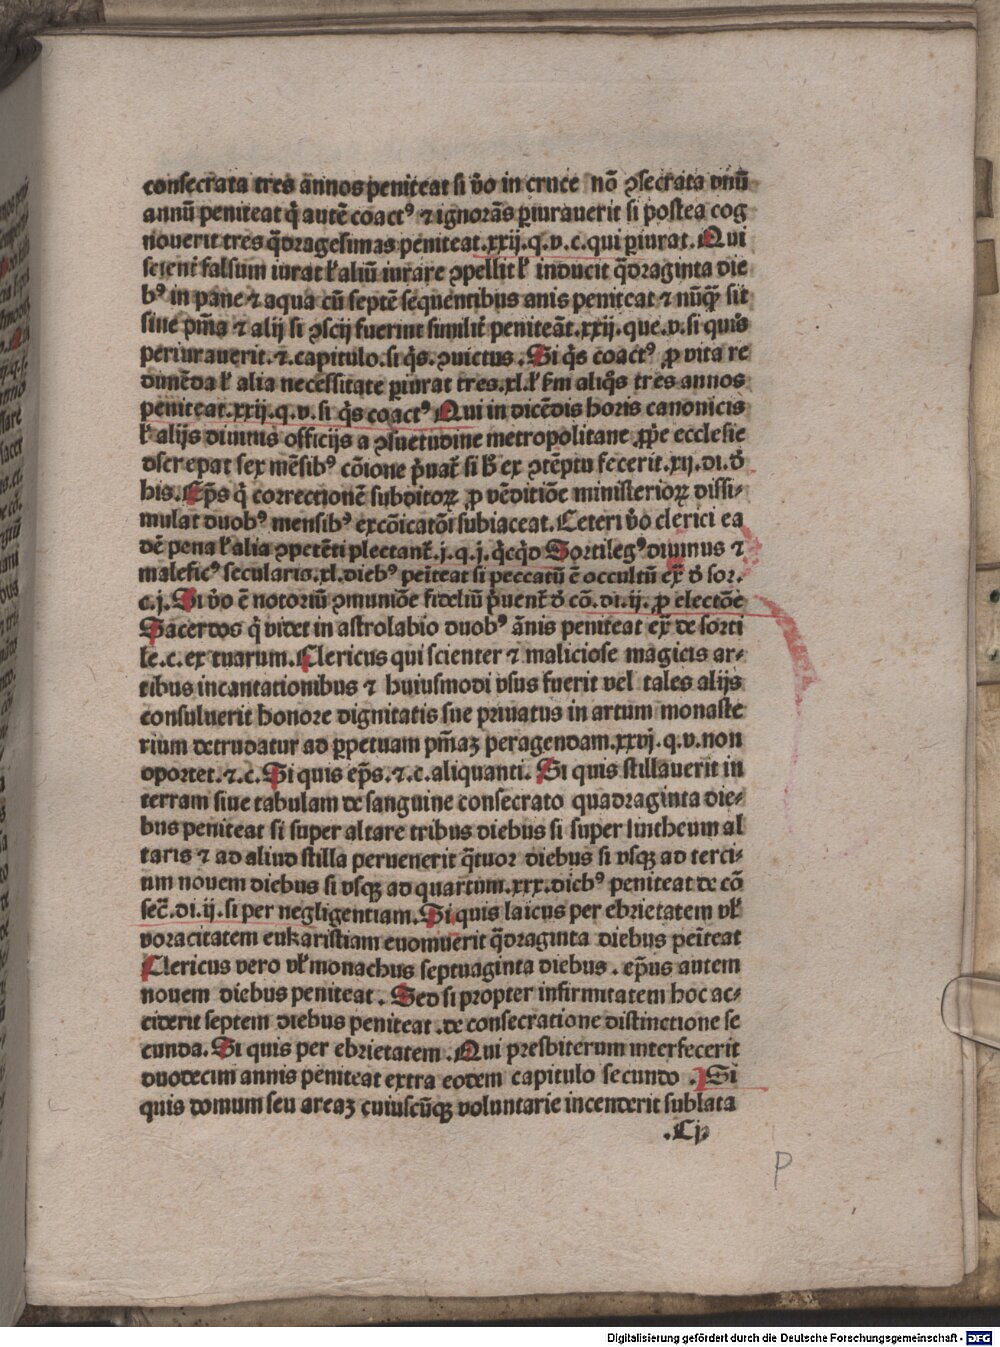 consecrata tres annos peniteat si ṽo in cruce nõ ꝯsecrata vnũ
annũ peniteat q̇ autẽ coactꝰ ⁊ ignorãs ꝑiurauerit si postea cog
nouerit tres q̃dragesimas peniteat.xxij.q.v.c.qui ꝑiurat. Qui
scient̃ falsum iurat ł aliũ iurare ꝯpellit ł inducit q̃draginta die
bꝰ in pane ⁊ aqua cũ septẽ sequentibus anis peniteat ⁊ nũq̃ sit
sine pñia ⁊ alij si ꝯscij fuerint similit̃ peniteãt.xxij.que.v.si quis
periurauerit.⁊.capitulo.si q̇s.ꝯuictus. Si q̇s coactꝰ ꝓ vita re
dimẽda ł alia necessitate ꝑiurat tres.xl.ł ẜm aliq̇s tres annos
peniteat.xxij.q.v.si q̇s coactꝰ Qui in dicẽdis horis canonicis
ł alijs diuinis officijs a ꝯsuetudine metropolitane ꝓp̃e ecclesie
discrepat sex mẽsibꝰ cõione p̃uat̃ si h̃ ex ꝯtẽptu fecerit.xij.di.d̾
his. Ep̃s q̇ correctionẽ subditoꝝ ꝓ vẽditiõe ministerioꝝ dissi-
mulat duobꝰ mensibꝰ excõicatõi subiaceat. Ceteri ṽo clerici ea
dẽ pena ł alia ꝯpetẽti plectant̃.j.q.j.q̇cq̇d Sortilegꝰ diuinus ⁊
maleficꝰ secularis.xl.diebꝰ peñteat si peccatũ ẽ occultũ ex̃ d̾ sor.
c.j. Si ṽo ẽ notoriũ ꝯmuniõe fideliũ p̃uent̃ d̾ cõ.di.ij. ꝓ electõe
Sacerdos q̇ videt in astrolabio duobꝰ ãnis peniteat ex̃ de sorti
le.c.ex tuarum. Clericus qui scienter ⁊ maliciose magicis ar-
tibus incantationibus ⁊ huiusmodi vsus fuerit vel tales alijs
consuluerit honore dignitatis sue priuatus in artum monaste
rium detrudatur ad ꝑpetuam pñiaꝫ peragendam.xxvj.q.v.non
oportet.⁊.c. Si quis ep̃s.⁊.c.aliquanti. Si quis stillauerit in
terram siue tabulam de sanguine consecrato quadraginta die-
bus peniteat si super altare tribus diebus si super lintheum al
taris ⁊ ad aliud stilla peruenerit q̃tuor diebus si vsqꝫ ad terci-
um nouem diebus si vsqꝫ ad quartum.xxx.diebꝰ peniteat de cõ
sec̃.di.ij.si per negligentiam. Si quis laicus per ebrietatem vł
voracitatem eukaristiam euomuerit q̃draginta diebus peñteat
Clericus vero vł monachus septuaginta diebus . ep̃us autem
nouem diebus peniteat . Sed si propter infirmitatem hoc ac-
ciderit septem diebus peniteat .de consecratione distinctione se
cunda. Si quis per ebrietatem . Qui presbiterum interfecerit
duodecim annis peniteat extra eodem capitulo secundo . Si
quis domum seu areaꝫ cuiuscũqꝫ voluntarie incenderit sublata
.Cj.
p
Digitalisierung gefördert durch die Deutsche Forschungsgemeinschaft - DFG